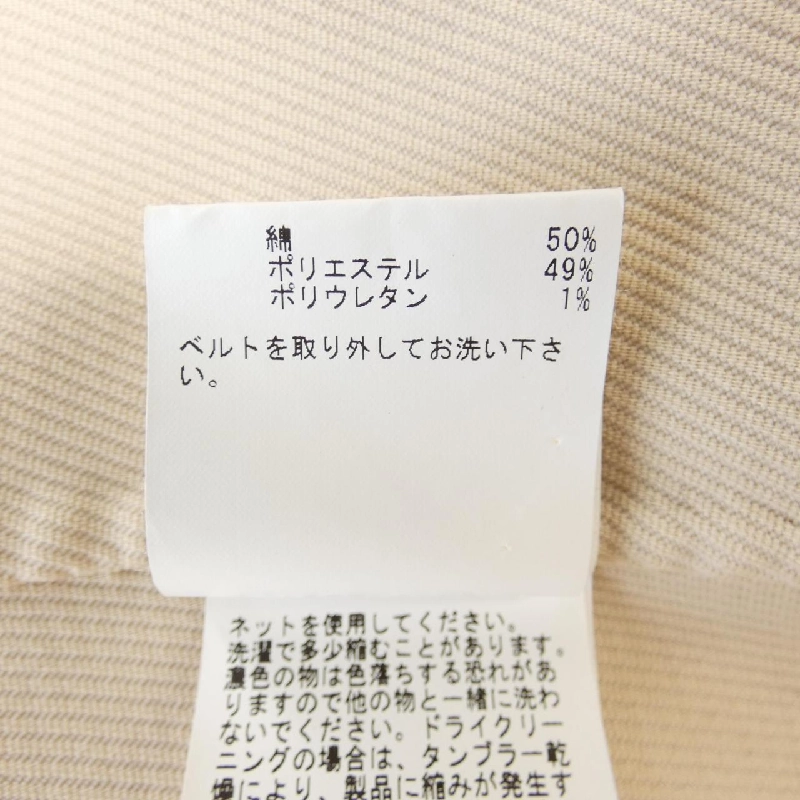 綿 50%
ポリエステル 49%
ポリウレタン 1%
ベルトを取り外してお洗い下さ
い。
ネットを使用してください。
洗濯で多少縮むことがあります。
濃色の物は色落ちする恐れがあ
りますので他の物と一緒に洗わ
ないでください。ドライクリー
ニングの場合は、タンブラー乾
燥により、製品に縮みが発生す